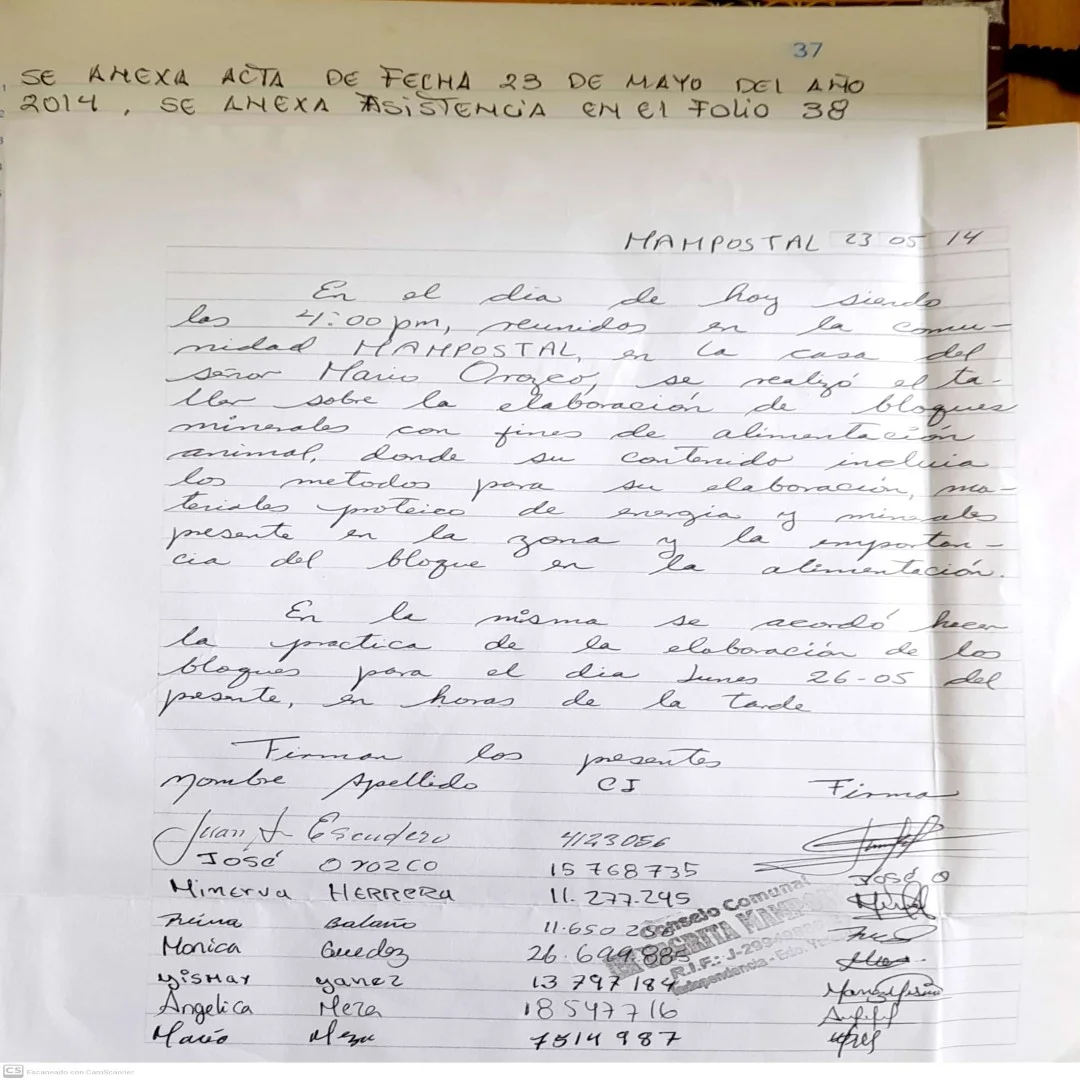 37
SE ANEXA ACTA DE FECHA 23 DE MAYO DEL AÑO
2014, SE ANEXA ASISTENCIA EN El FOLIO 38
MAMPOSTAL 23 05 14
En el dia de hoy siendo
las 4:00 pm, reunidos en la comu-
nidad MAMPOSTAL, en la casa del
señor Mario Orozco, se realizó el ta-
ller sobre la elaboración de bloques
minerales con fines de alimentación
animal, donde su contenido incluia
los metodos para su elaboración, ma-
teriales proteico de energia y minerales
presente en la zona y la importan-
cia del bloque en la alimentación.
En la misma se acordó hacer
la practica de la elaboración de los
bloques para el dia Lunes 26-05 del
presente, en horas de la tarde
Firman los presentes
Nombre Apellido CI Firma
Juan J. Escudero 4123056
JOSÉ OROZCO 15768735 José O
Minerva HERRERA 11.277.245
Balaño 11.650
Monica Guedez 26.699.885
yismar yanez 13 797 184
Angelica Meza 18547716
Mario Meza 7514987
Consejo Comunal
R.I.F.: J-299
Independencia - Edo.
CS Escaneado con CamScanner